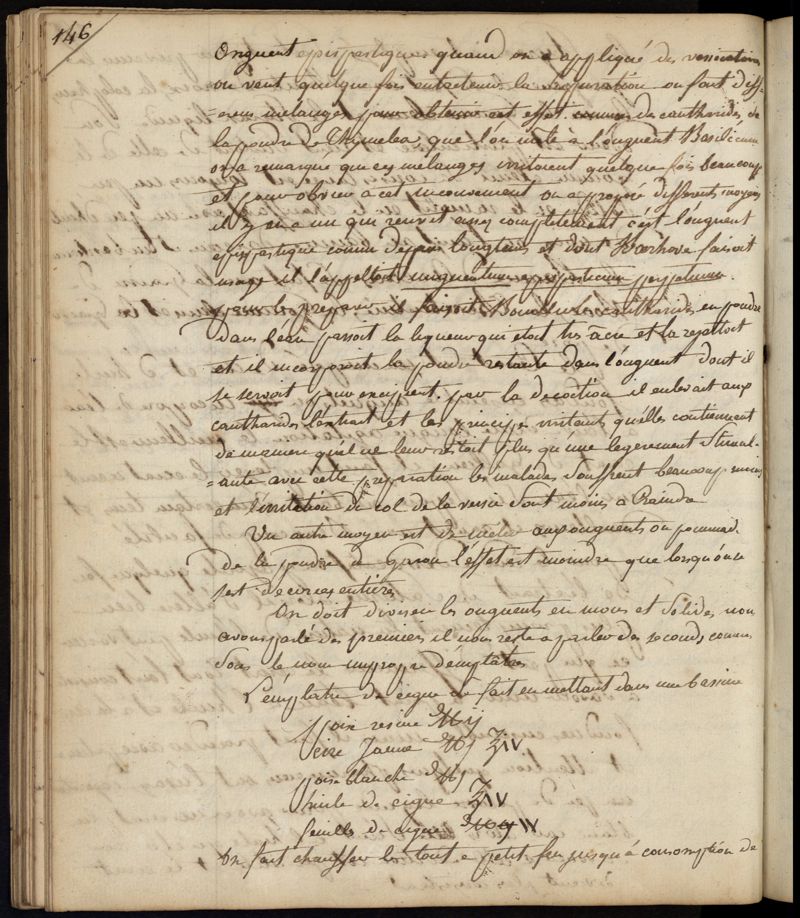 146
Onguent epispastiques quand on a appliqué des vessicatoires
on veut quelque fois entretenir la supuration on fait diff-
=erens mélanges pour obtenir cet effet comme des cantharides, de
la poudre de Thymelea que l'on mêle à l'onguent Basilicum
on a remarqué que ces mélanges irritoient quelque fois beaucoup
et pour obvier à cet inconvenient on a proposé differents moyens
il y en a un qui reussit assez completement c'est l'onguent
epispastique connu depuis longtems et dont Boerhove faisoit
usage il l'appelloit unguentum epispasticum perpetuum.
pour le preparer il faisoit Bouillir les cantharides en poudre
dans l'eau passoit la liqueur qui etoit tres âcre et la rejettoit
et il incorporoit la poudre restante dans l'onguent dont il
se servoit pour excipient. par la decoction il enlevait aux
cantharides l'extrait et les principes irritants qu'elles contiennent
de maniere qu'il ne leur restoit plus qu'une legerement Stimul-
=ante avec cette preparation les malades souffrent beaucoup moins
et l'irritation du col de la vessie sont moins a Craindre
Un autre moyen est de mêler aux onguents ou pommad.
de la poudre de Garou l'effet est moindre que lorsqu'on se
sert de ecorces entières
On doit diviser les onguents en mous et solides, nou
avons parlé des premiers il nous reste a parler des seconds connus
sous le nom impropre d'emplatres
L'emplatre de cigue se fait en mettant dans une bassine
Poix resine ℔ ij
Cire Jaune ℔ j ℥ IV
Poix blanche ℔ j
huile de cigue ℥ IV
feuilles de cigue ℔ IV
on fait chauffer le tout a petit feu jusqu'à consomption de